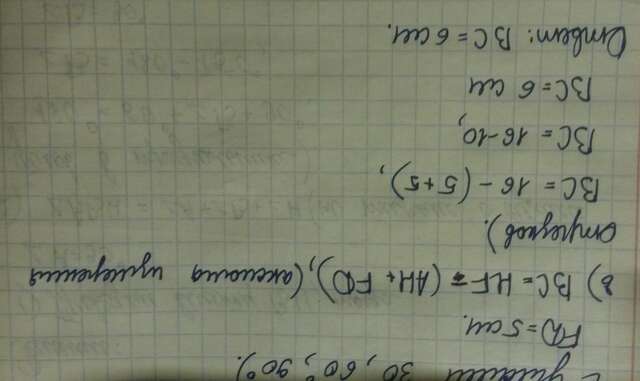 с углами 30, 60°, 90°).
FD = 5 см.
в) BC = HF = (AH + FD), (аксиома измерения
отрезков).
BC = 16 - (5 + 5),
BC = 16 - 10,
BC = 6 см
Ответ: BC = 6 см.